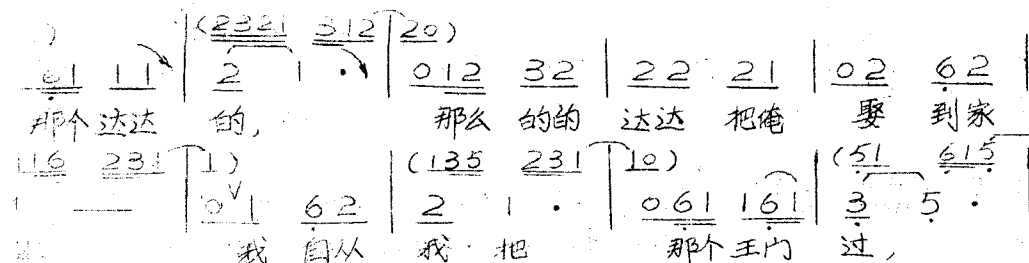 ) (2321 312 20)
61 11 2 1 · 012 32 22 21 02 62
那个 达达 的, 那么 的的 达达 把俺 娶 到家
116 231 1) (135 231 10) (51 615
1 — 0 1 62 2 1 · 061 161 3 5 ·
我 自从 我 把 那个 王门 过,